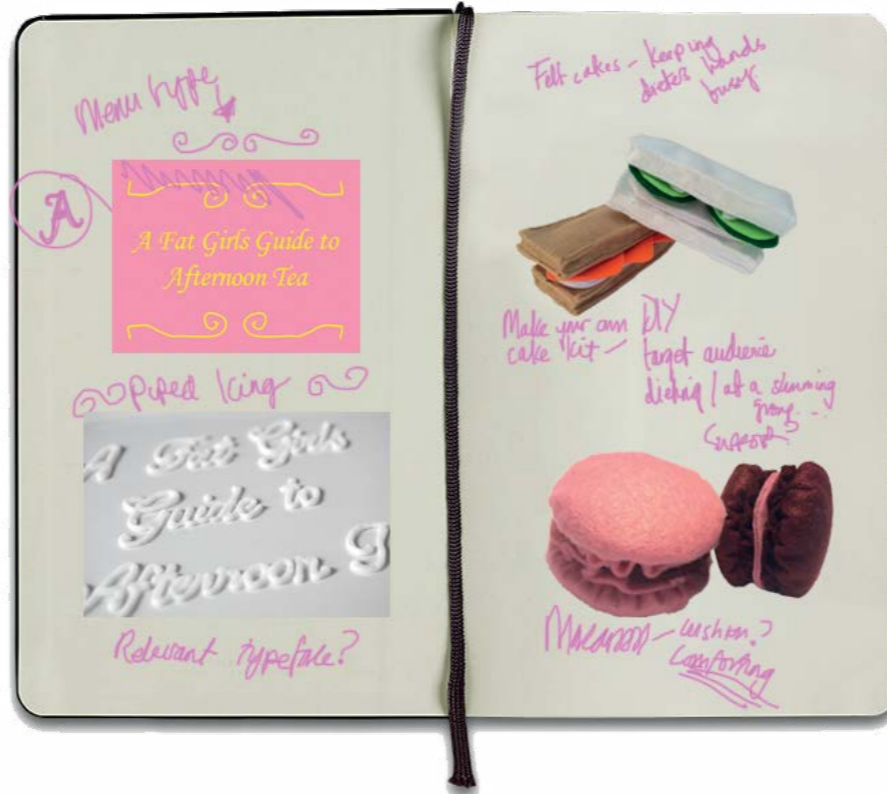 Menu type
A
A Fat Girls Guide to
Afternoon Tea
Piped Icing
A Fat Girls
Guide to
Afternoon T
Relevant typeface?
Felt cakes - keeping
dieters hands
busy
Make your own DIY
cake kit - target audience
dieting / at a slimming
group...
support?
Macaroon - cushion?
Comforting